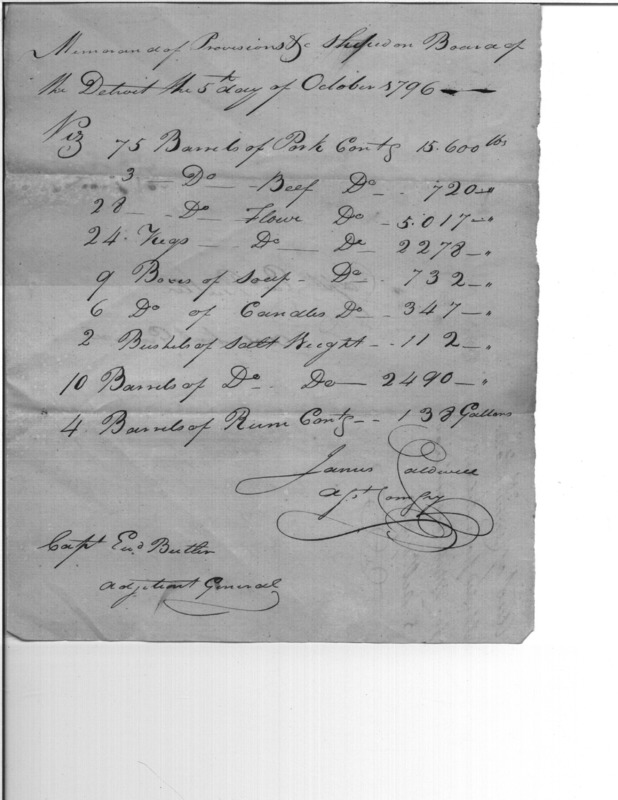 Memorand of Provisions &c Shiped on Board of
the Detroit the 5th day of October 1796
Viz 75 Barrels of Pork Contg 15.600 lbs
3 — Do — Beef Do - 720 — "
28 — Do — Flour Do - 5.017 — "
24 Kegs — Do — Do - 2278 — "
9 Boxes of Soap - Do - 732 — "
6 Do of Candles Do - 347 — "
2 Bushels of Salt Weight - 112 — "
10 Barrels of Do - Do — 2490 — "
4 Barrels of Rum Contg - - 138 Gallons
James Caldwell
Asst Comsry
Capt Ed Butler
Adjutant General